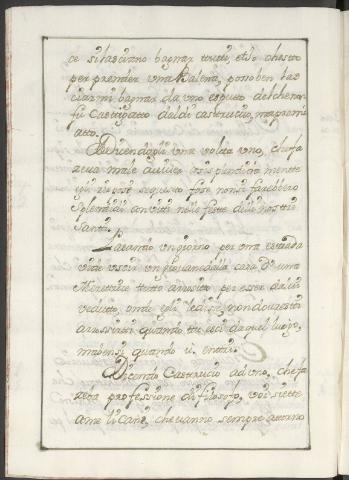 ce si lasciano bagnar tutti, et Io che sto
per prender una Balena, non ben las
ciarmi bagnar da uno esputo del che non
fù Castigatto dal di castruccio, ma premi
atto.
Dicendogli una volta uno, che fa
ceva male a viver cosi splendidamente
gli rispose se questo fose non si farebbero
splendidi conviti nelle feste delli nostri
Santi.
Pasando un giorno per una strada
vide uscir un giovane dalla casa di una
Meretrice tutto arossito per esser da lui
veduto, onde egli le disse, non dovresti
arossirti quando tu esci da quel luogo,
ma bensi quando vi entri.
Dicendo Castruccio ad uno, che fa
ceva professione di filosofo, voi siette
come li cani, che vanno sempre atorno